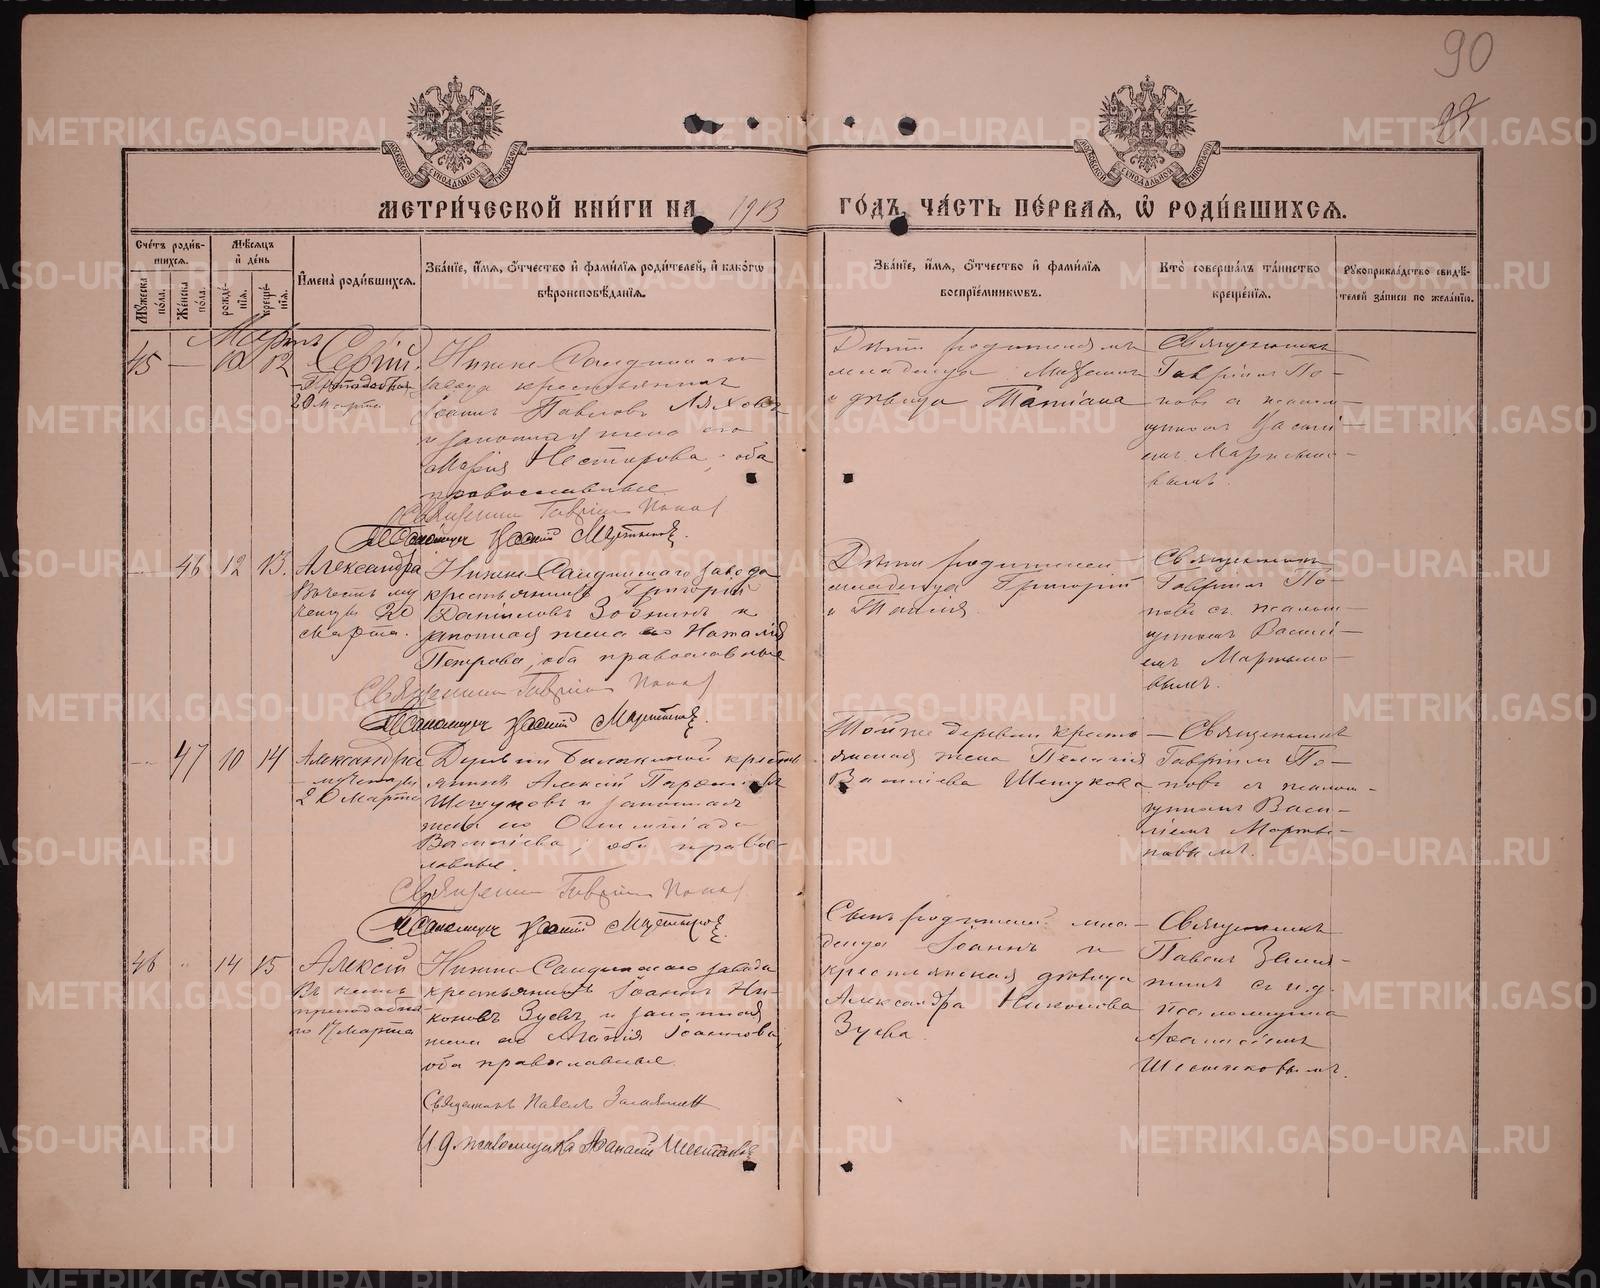 90
МЕТРИ́ЧЕСКОЙ КНИ́ГИ НА 1913 ГО́ДЪ, ЧА́СТЬ ПЕ́РВАЯ, Ѡ РОДИ́ВШИХСЯ.
Счётъ роди́вшихся.
Мѣ́сяцъ и де́нь
Мꙋ́жеска по́ла.
Же́нска по́ла.
рожде́нїя.
креще́нїя.
Имена̀ роди́вшихся.
Зва́нїе, и́мя, ѻ́тчество и фами́лїя роди́телей, и како́гѡ вѣроисповѣ́данїя.
Зва́нїе, и́мя, ѻ́тчество и фами́лїя воспрїе́мникѡвъ.
Кто̀ соверша́лъ та́инство креще́нїя.
Рꙋкоприкла́дство свидѣ́телей за́писи по жела́нїю.
Мартъ
45 — 12
Сергій
20 Марта
Нижне-Салдинскаго
завода крестьянинъ
Іоаннъ Павловъ Ляховъ
и законная жена его
Марія Нестерова, оба
православные
Священникъ Гавріилъ Поповъ
Псаломщикъ Василій Мартыновъ.
Дѣти родителямъ
младенца Михаилъ
и дѣвица Татіана
Священникъ
Гавріилъ По-
повъ съ псалом-
щикомъ Васілі-
емъ Мартыно-
вымъ.
46 12 13.
Александра
въ честь му
ченицы 20
Марта.
Нижне-Салдинскаго завода
крестьянинъ Григорій
Даніиловъ Зобнинъ и
законная жена его Наталія
Петрова, оба православные
Священникъ Гавріилъ Поповъ
Псаломщикъ Василій Мартыновъ.
Дѣти родителей
младенца Григорій
и Таисія
Священникъ
Гавріилъ По-
повъ съ псалом-
щикомъ Василі-
емъ Мартыно-
вымъ.
47 10 14
Александра
мученицы
20 Марта
Деревни крестья
янинъ Алексій
Шешуковъ и законная
жена его Олимпіада
Васильева, оба право-
славные.
Священникъ Гавріилъ Поповъ
Псаломщикъ Василій Мартыновъ.
Той же деревни кресть-
янская жена Пелагія
Васильева Шешукова
Священникъ
Гавріилъ По-
повъ съ псалом-
щикомъ Васи-
ліемъ Марты-
новымъ.
46 14 15
Алексій
въ честь
преподобна
го 17 Марта
Нижне-Салдинскаго завода
крестьянинъ Іоаннъ Ни-
коновъ Зуевъ и законная
жена его Агаѳія Іоаннова,
оба православные.
Священникъ Павелъ
И. д. псаломщика Аѳанасій Шестаковъ
Сынъ родителей мла-
денца Іоаннъ и
крестьянская дѣвица
Александра Никонова
Зуева
Священникъ
Павелъ
съ и. д.
псаломщика
Аѳанасіемъ
Шестаковымъ.
METRIKI.GASO-URAL.RU